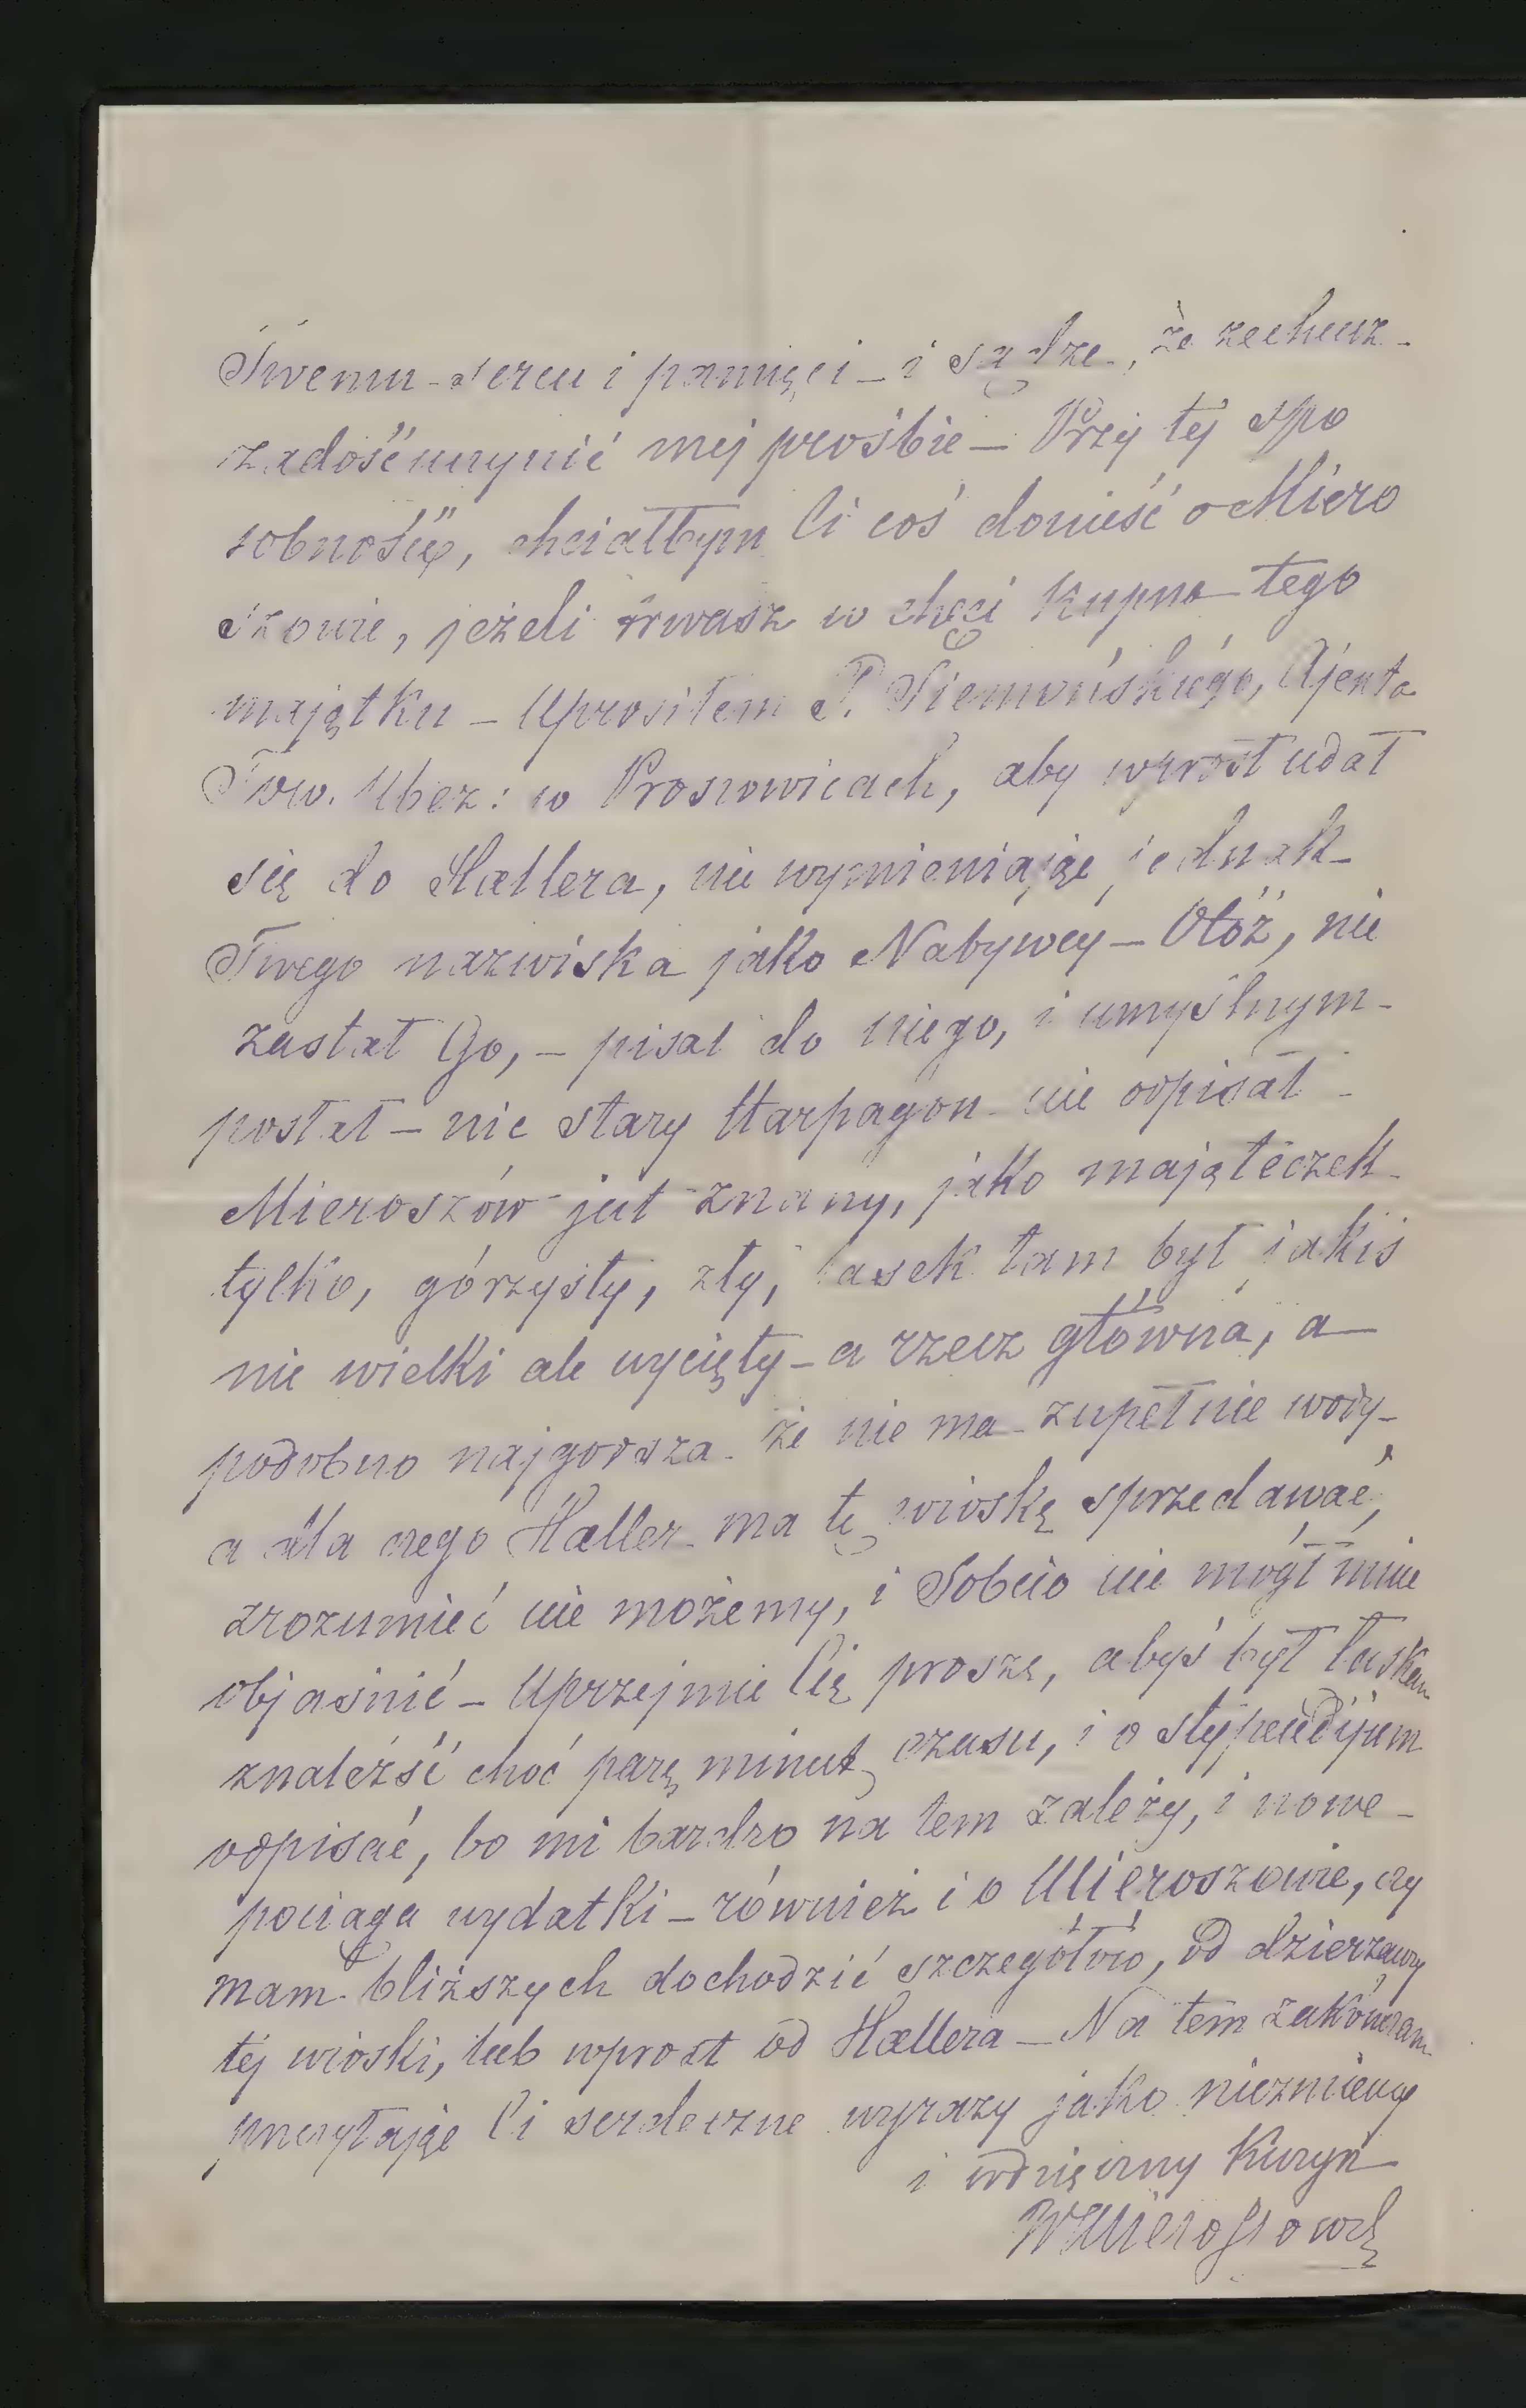 Twemu sercu i pamięci – i sądzę, że zechcesz –
zadość uczynić mej prośbie – Przy tej spo
sobności, chciałbym Ci coś donieść o Miero
szowie, jeżeli trwasz w chęci kupna tego
majątku – Uprosiłem P. Ajenta
Tow. Ubez: w Proszowicach, aby wprost udał
się do Hallera, nie wymieniając jednak –
Twego nazwiska jako Nabywcy – Otóż, nie
zastał Go, – pisał do niego, i umyślnym –
posłał – nic stary Harpagon nie odpisał –
Mieroszów jest znany, jako mająteczek –
tylko, górzysty, zły, lasek tam był jakiś
nie wielki ale wycięty – a rzecz główna, a –
podobno najgorsza – że nie ma – zupełnie wody –
a dla czego Haller – ma tę wioskę sprzedawać,
zrozumieć nie możemy, i Sobcio nie mógł mnie
objaśnić – Uprzejmie Cię proszę, abyś był łaskaw
znaleźść choć parę minut czasu, i o stypendijum
odpisać, bo mi bardzo na tem zależy, i nowe –
pociąga wydatki – również i o Mieroszowie, czy
mam bliższych dochodzić szczegółów, od dzierżawcy
tej wioski, lub wprost od Hallera – Na tem zakończam
przesyłając Ci serdeczne wyrazy jako niezmienny
i wdzięczny Kuzyn
WMieroszowski